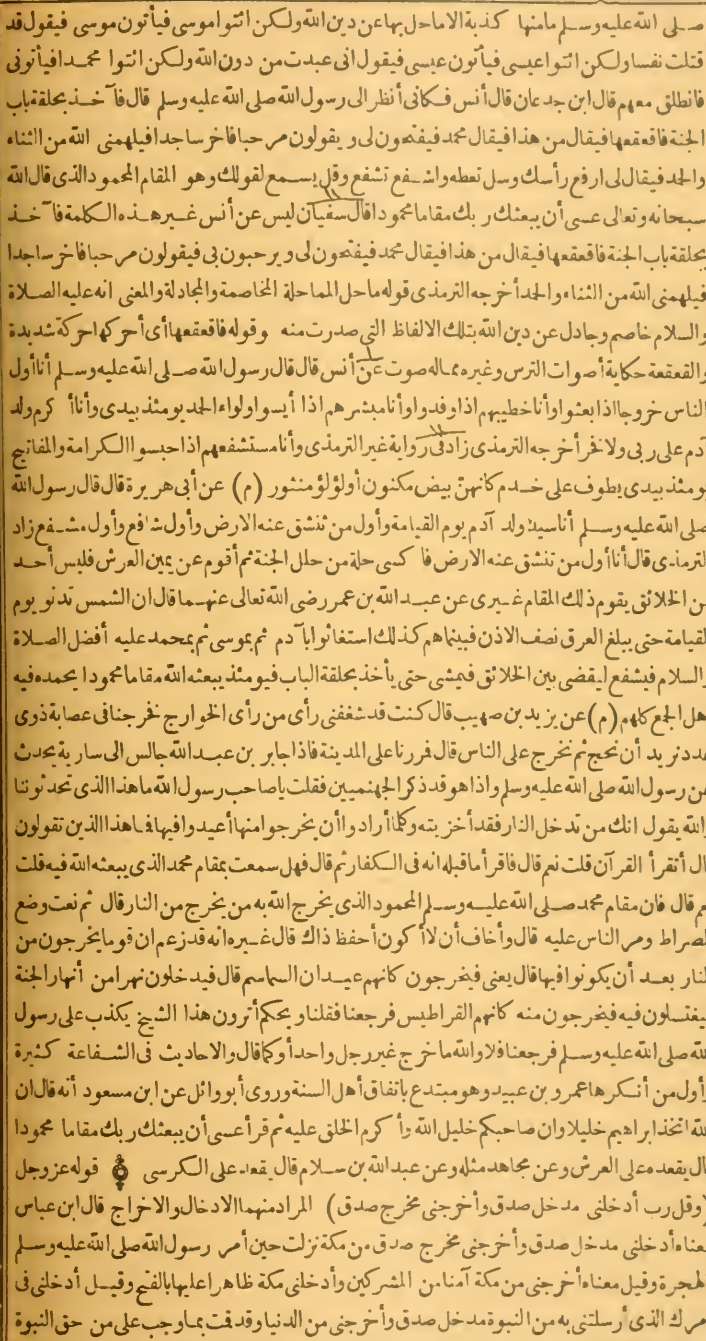 صلى الله عليه وسلم مامنها كذبة الا ماحل بها عن دين الله ولكن ائتوا موسى فيأتون موسى فيقول قد
قتلت نفسا ولكن ائتوا عيسى فيأتون عيسى فيقول انى عبدت من دون الله ولكن ائتوا محمدا فيأتونى
فانطلق معهم قال ابن جدعان قال أنس فكأنى أنظر الى رسول الله صلى الله عليه وسلم قال فآخذ بحلقة باب
الجنة فاقعقعها فيقال من هذا فيقال محمد فيفتحون لى ويقولون مرحبا فاخر ساجدا فيلهمنى الله من الثناء
والحمد فيقال لى ارفع رأسك وسل تعطه واشفع تشفع وقل يسمع لقولك وهو المقام المحمود الذى قال الله
سبحانه وتعالى عسى أن يبعثك ربك مقاما محمودا قال سفيان ليس عن أنس غير هذه الكلمة فآخذ
بحلقة باب الجنة فاقعقعها فيقال من هذا فيقال محمد فيفتحون لى ويرحبون بى فيقولون مرحبا فاخر ساجدا
فيلهمنى الله من الثناء والحمد أخرجه الترمذى قوله ماحل المماحلة المخاصمة والمجادلة والمعنى انه عليه الصلاة
والسلام خاصم وجادل عن دين الله بتلك الالفاظ التى صدرت منه وقوله فاقعقعها أى أحركها حركة شديدة
والقعقعة حكاية أصوات الترس وغيره مماله صوت عن أنس قال قال رسول الله صلى الله عليه وسلم أنا أول
الناس خروجا اذا بعثوا وأنا خطيبهم اذا وفدوا وأنا مبشرهم اذا أيسوا ولواء الحمد يومئذ بيدى وأنا أكرم ولد
آدم على ربى ولا فخر أخرجه الترمذى زاد فى رواية غير الترمذى وأنا مستشفعهم اذا حبسوا الكرامة والمفاتيح
يومئذ بيدى يطوف على خدم كانهن بيض مكنون أو لؤلؤ منثور (م) عن أبى هريرة قال قال رسول الله
صلى الله عليه وسلم أنا سيد ولد آدم يوم القيامة وأول من تنشق عنه الارض وأول شافع وأول مشفع زاد
الترمذى قال أنا أول من تنشق عنه الارض فاكسى حلة من حلل الجنة ثم أقوم عن يمين العرش فليس أحد
من الخلائق يقوم ذلك المقام غيرى عن عبد الله بن عمر رضى الله تعالى عنهما قال ان الشمس تدنو يوم
القيامة حتى يبلغ العرق نصف الاذن فبينماهم كذلك استغاثوا بآدم ثم بموسى ثم بمحمد عليه أفضل الصلاة
والسلام فيشفع ليقضى بين الخلائق فيمشى حتى يأخذ بحلقة الباب فيومئذ يبعثه الله مقاما محمودا يحمده فيه
أهل الجمع كلهم (م) عن يزيد بن صهيب قال كنت قد شغفنى رأى من رأى الخوارج فخرجنا فى عصابة ذوى
عدد نريد أن نحج ثم نخرج على الناس قال فمررنا على المدينة فاذا جابر بن عبد الله جالس الى سارية يحدث
عن رسول الله صلى الله عليه وسلم واذا هو قد ذكر الجهنميين فقلت ياصاحب رسول الله ما هذا الذى تحدثوننا
والله يقول انك من تدخل النار فقد أخزيته وكلما أرادوا أن يخرجوا منها أعيدوا فيها فما هذا الذين تقولون
قال أتقرأ القرآن قلت نعم قال فاقرأ ما قبله انه فى الكفار ثم قال فهل سمعت بمقام محمد الذى يبعثه الله فيه قلت
نعم قال فان مقام محمد صلى الله عليه وسلم المحمود الذى يخرج الله به من يخرج من النار قال ثم نعت وضع
الصراط ومر الناس عليه قال وأخاف أن لا أكون أحفظ ذاك قال غيره انه قد زعم ان قوما يخرجون من
النار بعد أن يكونوا فيها قال يعنى فيخرجون كانهم عيدان السماسم قال فيدخلون نهرا من أنهار الجنة
فيغتسلون فيه فيخرجون منه كانهم القراطيس فرجعنا فقلنا ويحكم أترون هذا الشيخ يكذب على رسول
الله صلى الله عليه وسلم فرجعنا فلا والله ما خرج غير رجل واحد أو كما قال والاحاديث فى الشفاعة كثيرة
وأول من أنكرها عمرو بن عبيد وهو مبتدع باتفاق أهل السنة وروى أبو وائل عن ابن مسعود أنه قال ان
الله اتخذ ابراهيم خليلا وان صاحبكم خليل الله وأكرم الخلق عليه ثم قرأ عسى أن يبعثك ربك مقاما محمودا
قال يقعده على العرش وعن مجاهد مثله وعن عبد الله بن سلام قال يقعد على الكرسى قوله عز وجل
(وقل رب أدخلنى مدخل صدق وأخرجنى مخرج صدق) المراد منهما الادخال والاخراج قال ابن عباس
معناه أدخلنى مدخل صدق وأخرجنى مخرج صدق من مكة نزلت حين أمر رسول الله صلى الله عليه وسلم
بالهجرة وقيل معناه أخرجنى من مكة آمنا من المشركين وأدخلنى مكة ظاهرا عليها بالفتح وقيل أدخلنى فى
أمرك الذى أرسلتنى به من النبوة مدخل صدق وأخرجنى من الدنيا وقد قت بما وجب على من حق النبوة